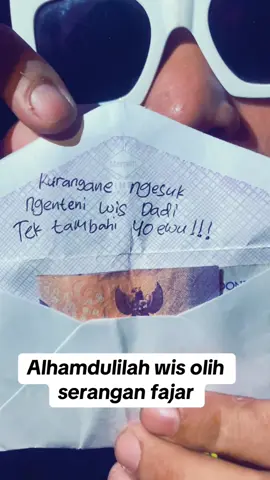 Kurangane ngesuk
ngenteni wis Dadi
Tek tambahi 40 ewu!!!
Alhamdulilah wis olih
serangan fajar